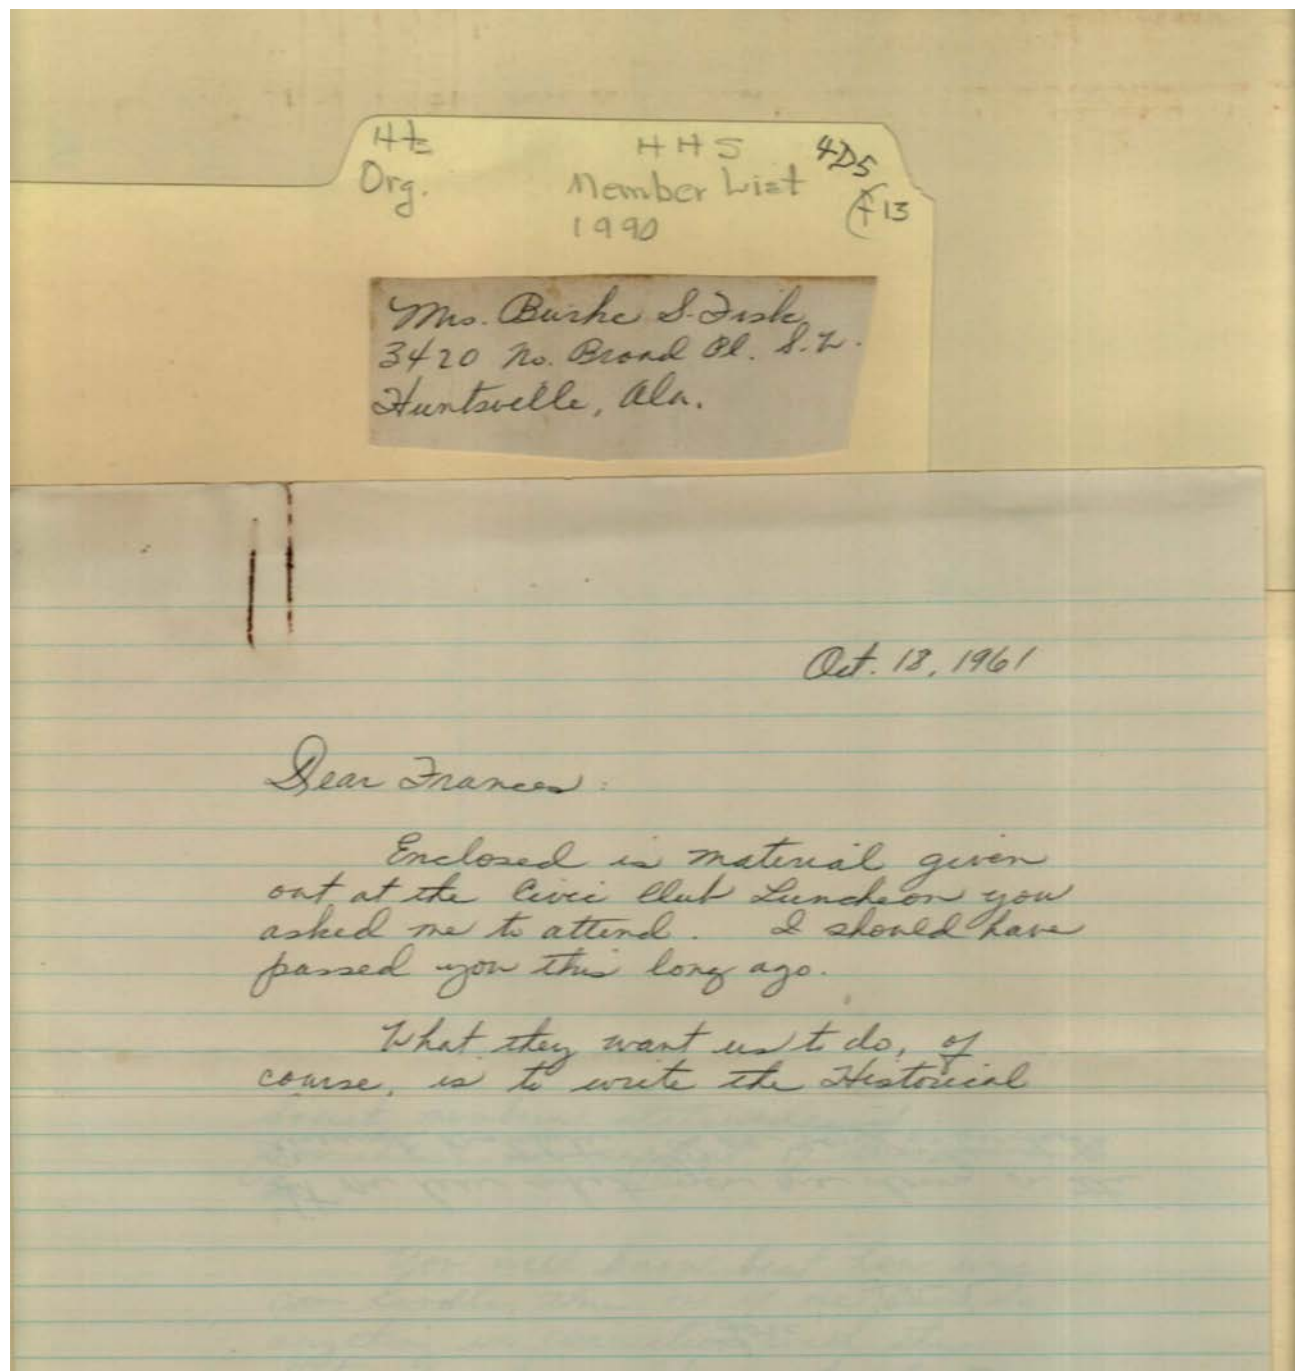 Hts
Org.
HHS
Member List
1990
4D5
f13
Mrs. Burke S. Fisk
3420 No. Broad Pl. S.W.
Huntsville, Ala.
Oct. 18, 1961
Dear Frances:
Enclosed is material given
out at the Civic Club Luncheon you
asked me to attend. I should have
passed you this long ago.
What they want us to do, of
course, is to write the Historical